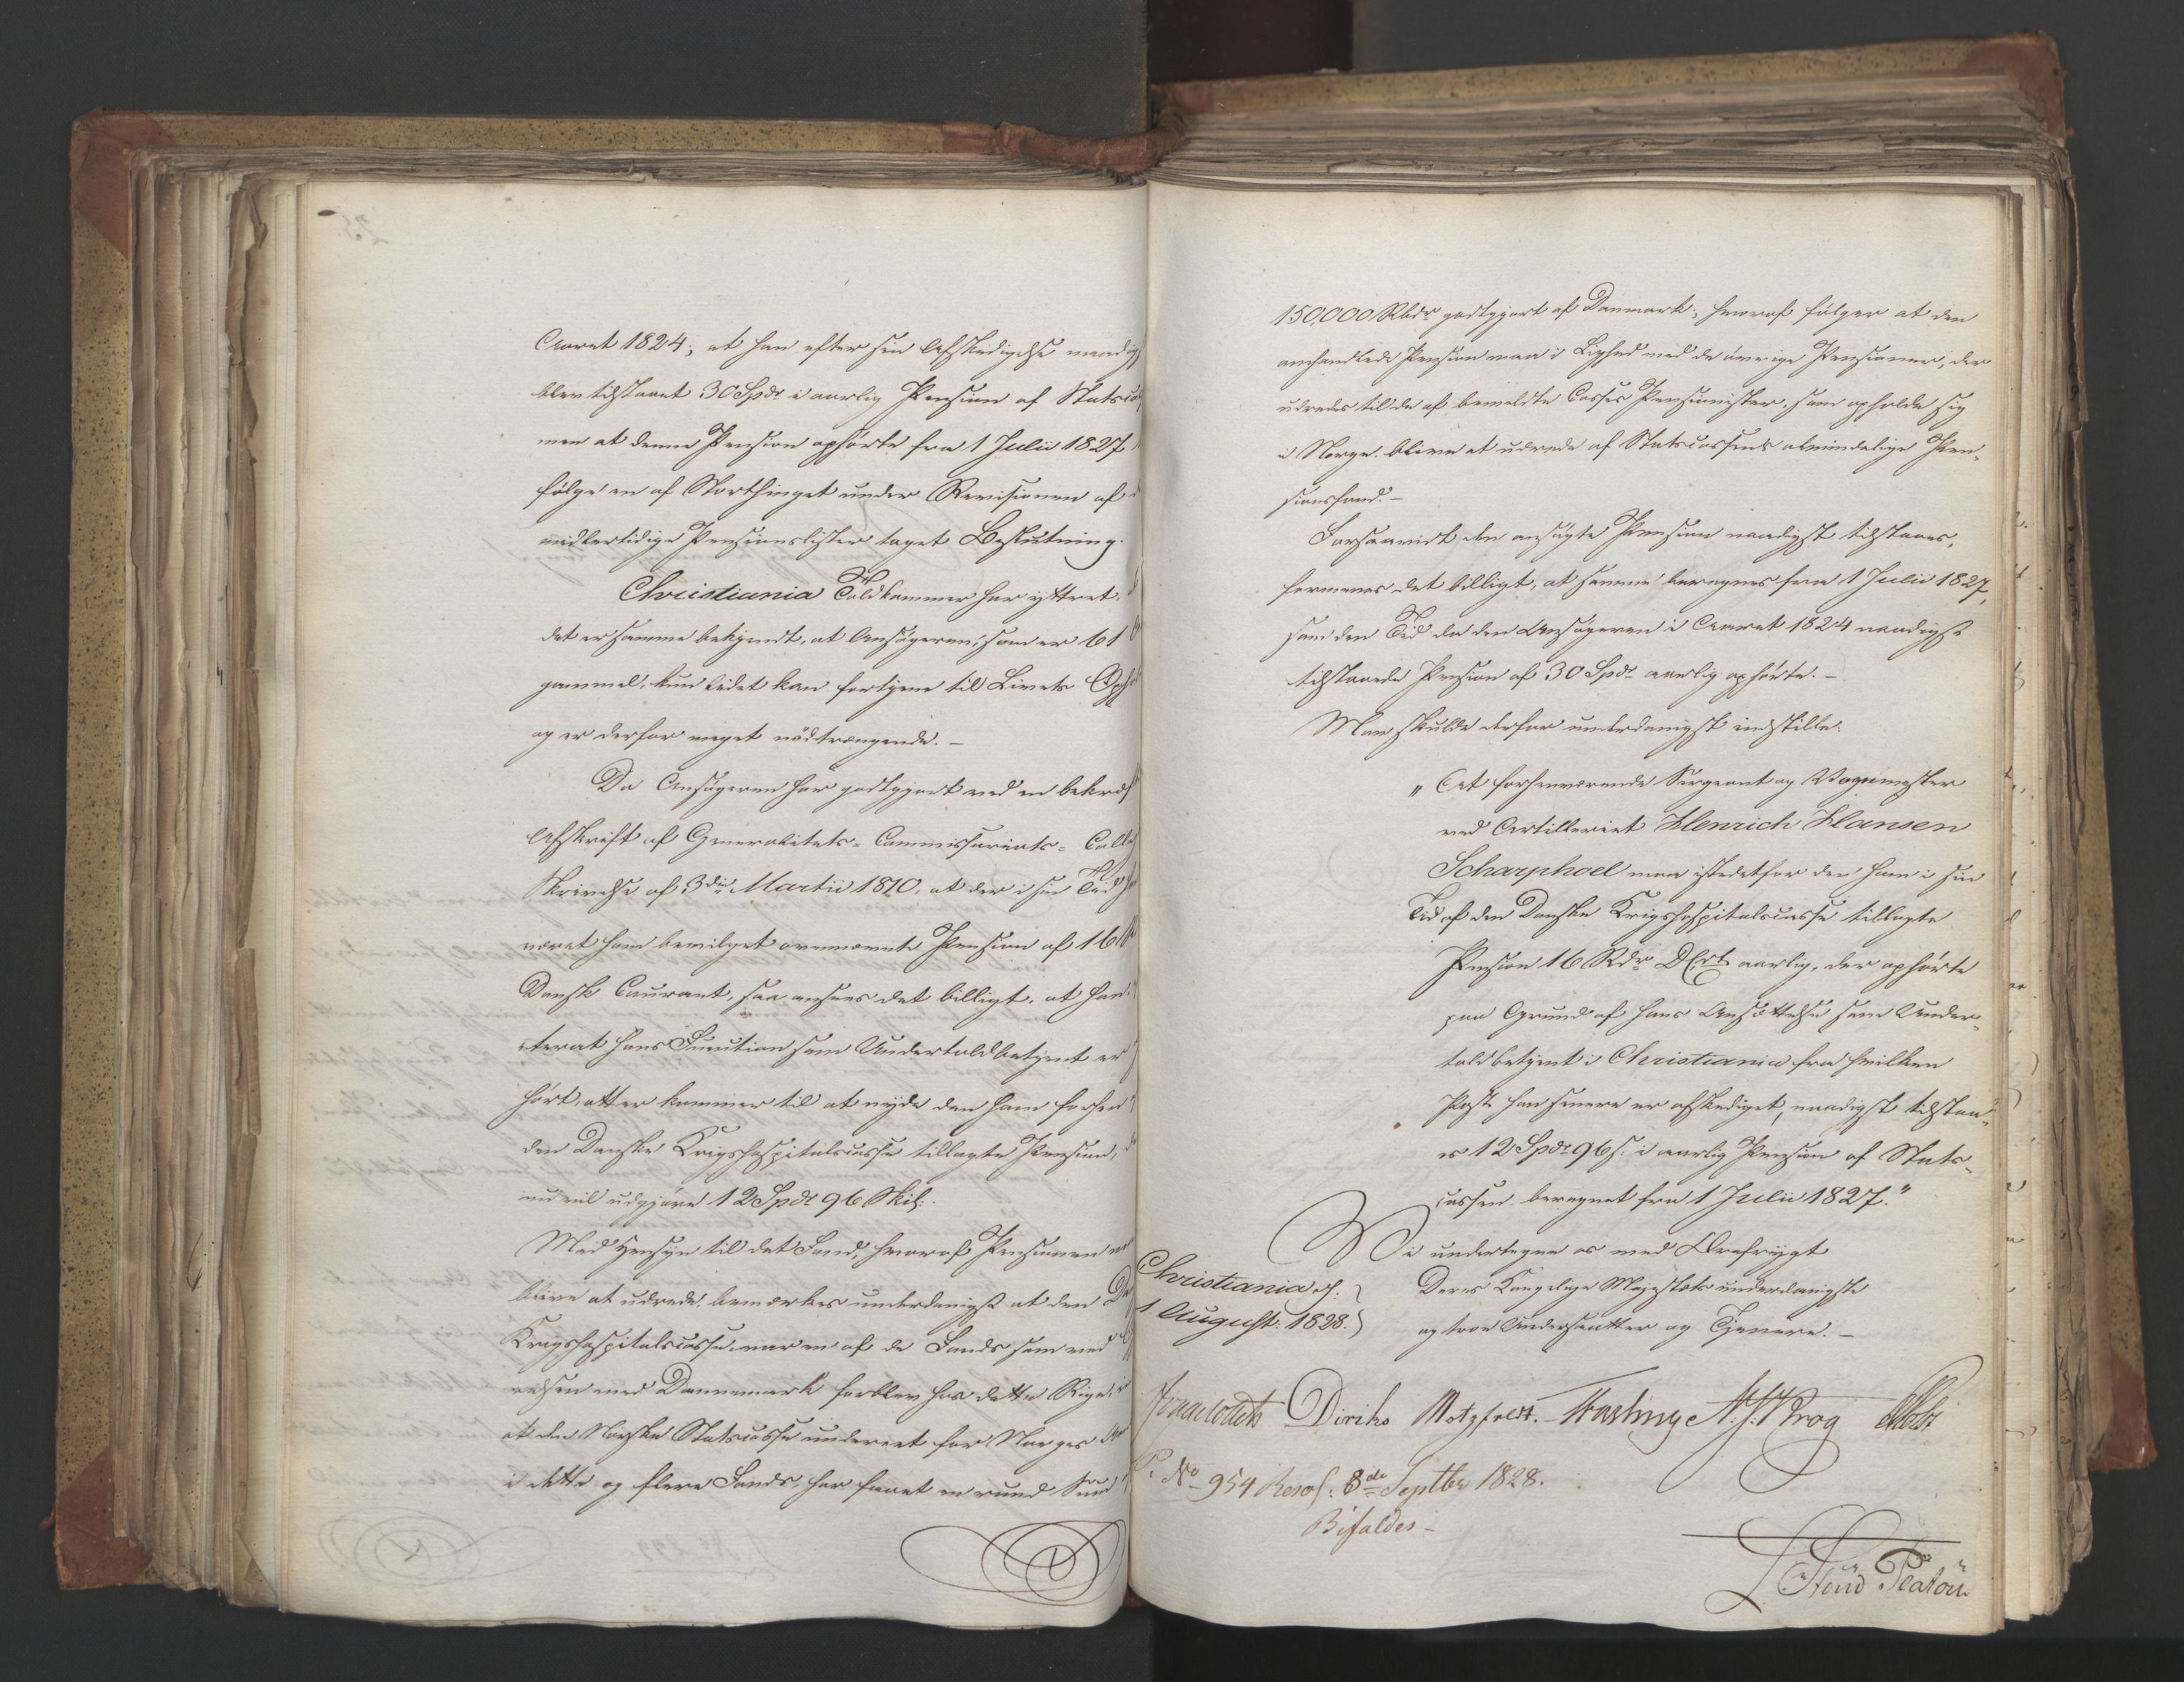 Aaret 1824, at han efter sin Afskedigelse naadigst
blev tilstaaet 30 Spdr i aarlig Pension af Statscas
men at denne Pension ophørte fra 1 Julii 1827
følge en af Storthinget under Revisionen af
midlertidige Pensionslister taget Beslutning.
Christiania Toldkammer har yttret,
det er samme bekjendt, at Ansøgeren, som er 61
gammel, kun lidet kan fortjene til Livets Oph
og er derfor meget nødtrængende. -
Da Ansøgeren har godtgjort ved en bekræf
Afskrift af Generalitets- Commissariats- Colle
Skrivelse af 3die Martii 1810, at der i sin Tid
været ham bevilget ovennævnte Pension af 16
Dansk Courant, saa ansees det billigt, at han
efterat hans Function som Undertoldbetjent er
hørt, atter kommer til at nyde den ham forhen
den Danske Krigshospitalscasse tillagte Pension,
nu vil udgjøre 12 Spdr 96 Skil:.
Med Hensyn til det Fond, hvoraf Pensionen
blive at udrede, bemærkes underdanigst at den Da
Krigshospitalscasse, var en af de Fonds som ved
relsen med Dannemark forblev hos dette Rige,
at den Norske Statscasse underet for Norges
i dette og flere Fonds, har faaet en rund Sum
150,000 Rbdr godtgjort af Danmark, hvoraf følger at den
omhandlede Pension maa i Lighed med de øvrige Pensioner, der
udredes til de af bemeldte Casses Pensionister, som opholde sig
i Norge, blive at udrede af Statscassens almindelige Pen-
sionsfond. -
Forsaavidt den ansøgte Pension naadigst tilstaaes,
formenes det billigt, at samme beregnes fra 1 Julii 1827,
som den Tid da den Ansøgeren i Aaret 1824 naadigst
tilstaaede Pension af 30 Spdr aarlig ophørte. -
Man skulde derfor underdanigst indstille:
"At forhenværende Sergeant og Vognmester
ved Artilleriet Henrich Hansen
Scharphoel maa istedetfor den ham i sin
Tid af den Danske Krigshospitalscasse tillagte
Pension 16 Rdr DCrt aarlig, der ophørte
paa Grund af hans Ansættelse som Under-
toldbetjent i Christiania fra hvilken
Post han senere er afskediget, naadigst tilstaa-
es 12 Spdr 96 s. i aarlig Pension af Stats-
cassen, beregnet fra 1 Julii 1827."
Vi undertegne os med Ærefrygt
Christiania d.
Deres Kongelige Majestæts underdanigste
1 August. 1828.
og troe Undersaatter og Tjenere. -
Diriks Motzfeldt. Krog
No 954 Resol: 8de Septbr 1828.
Bifaldes -